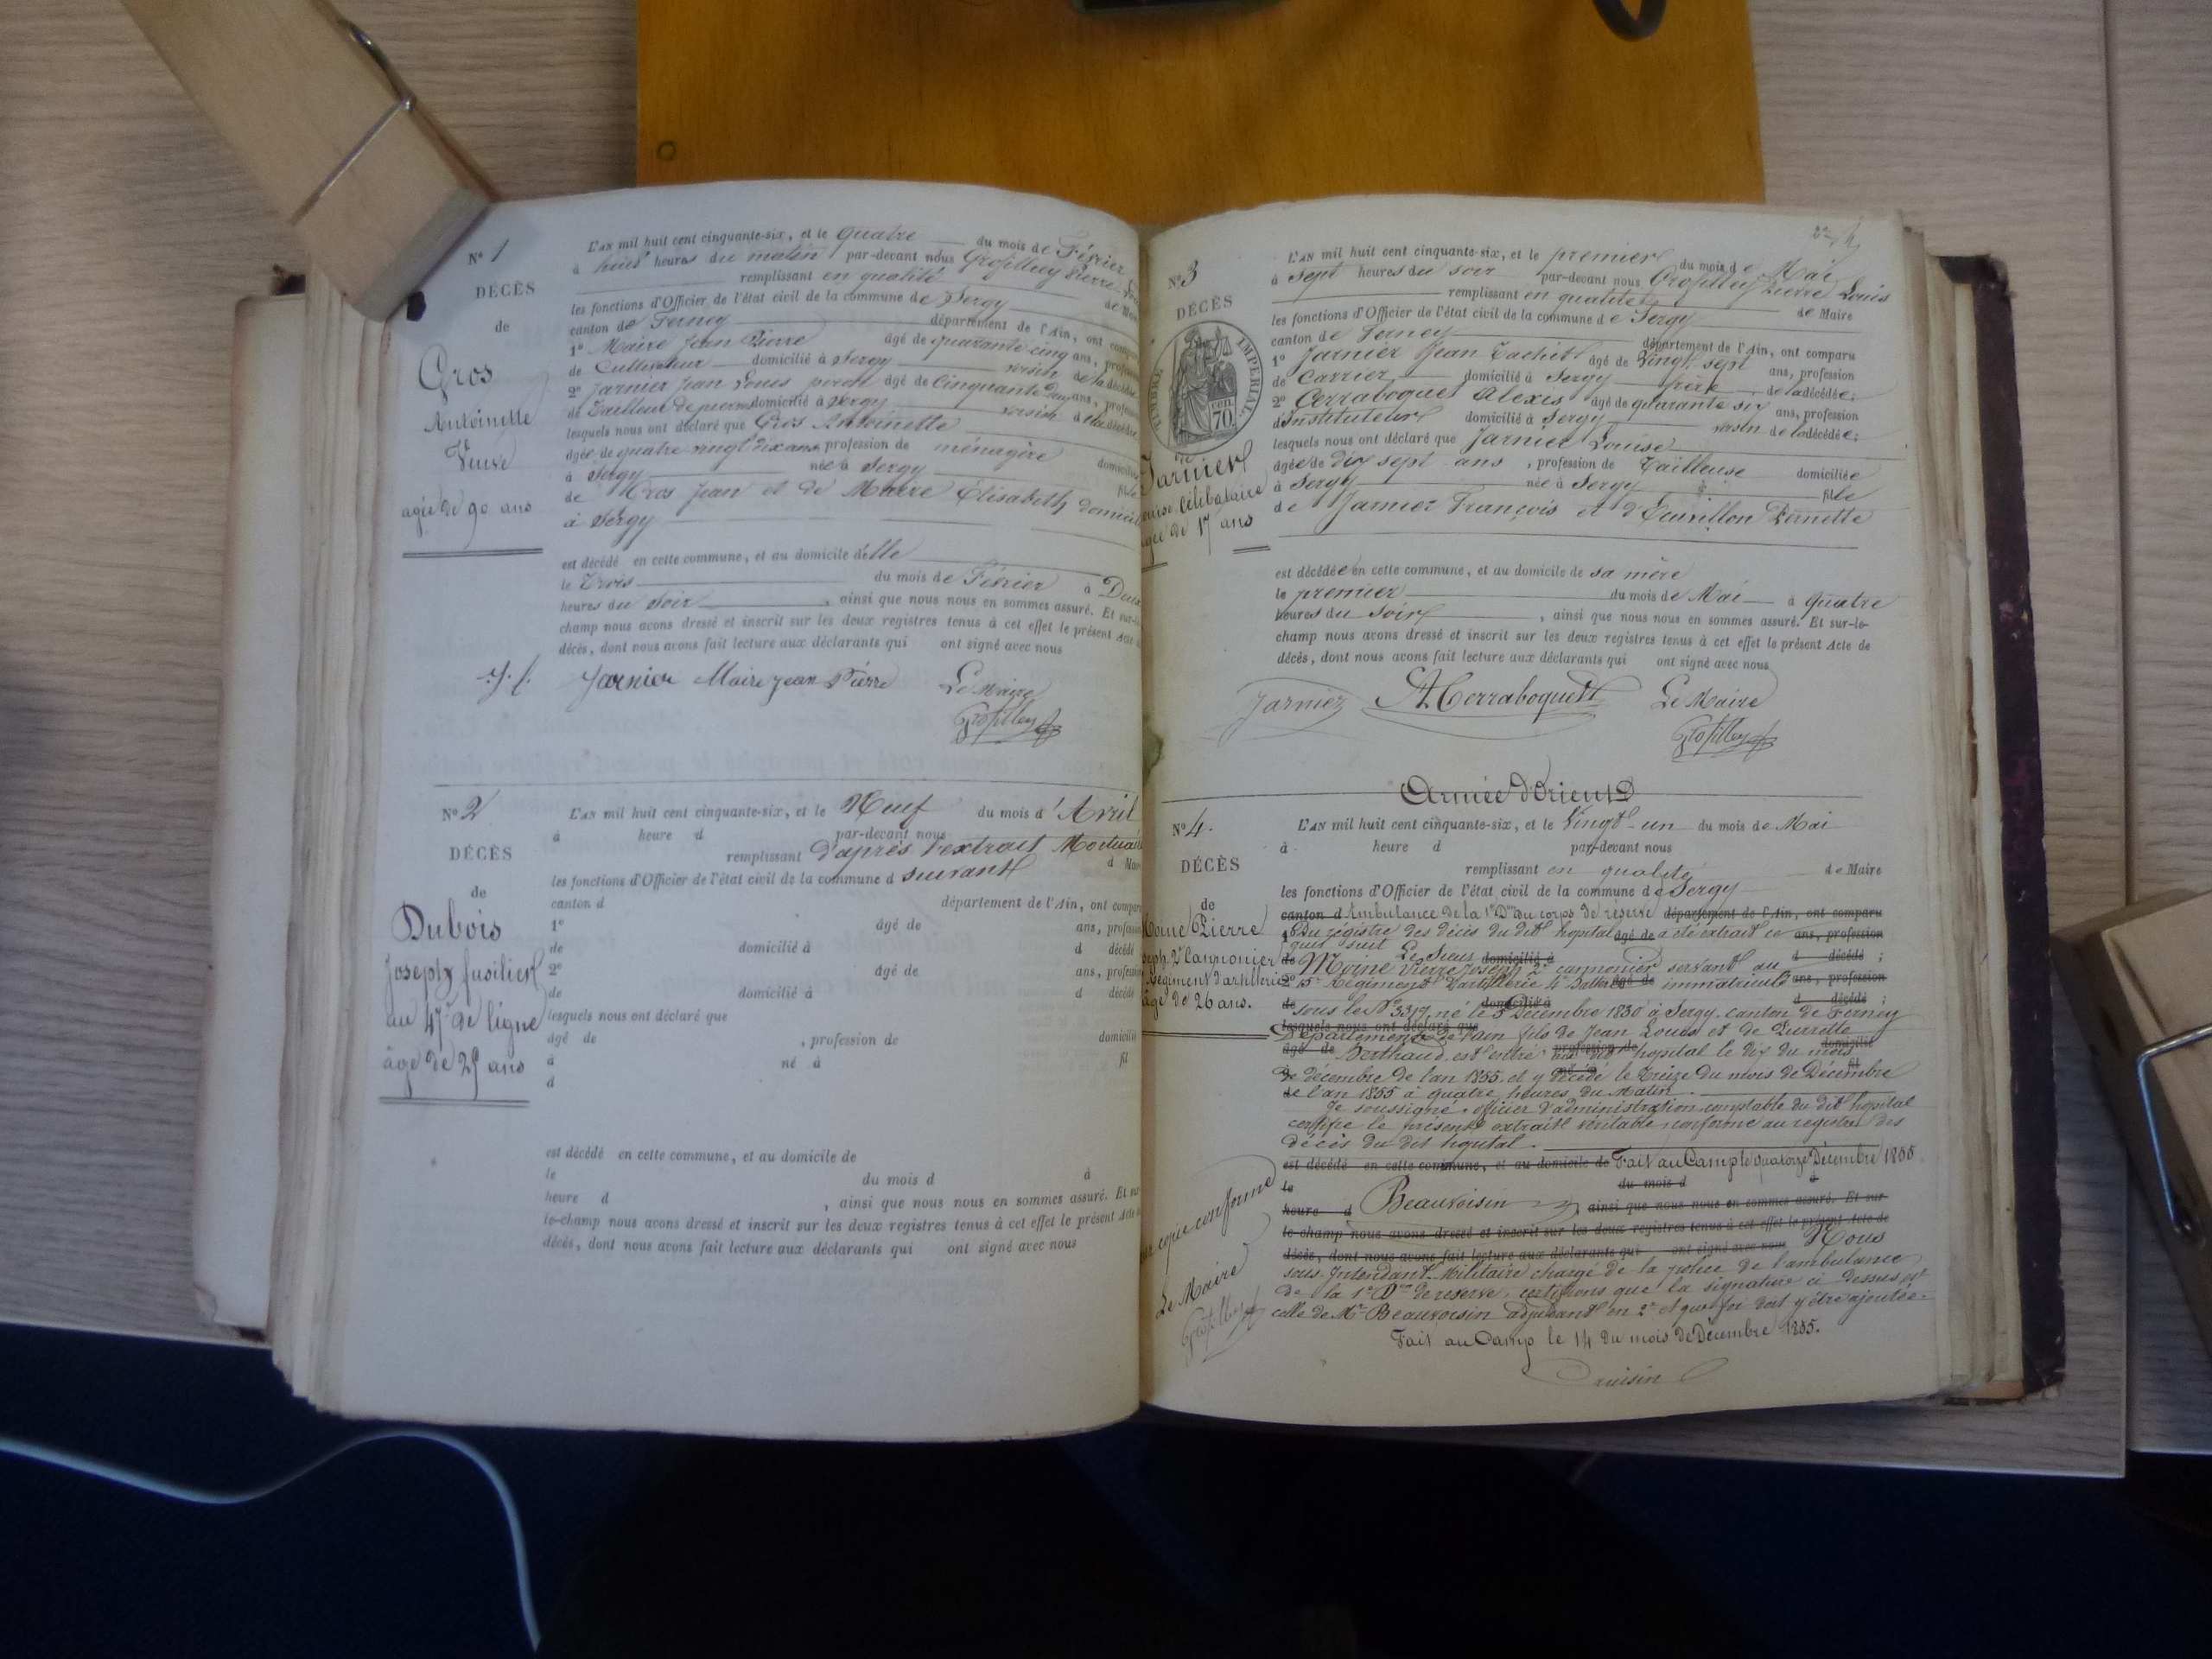 N° 1
DÉCÈS
de
Gros
Antoinette
Veuve
agée de 90 ans
L'AN mil huit cent cinquante-six, et le quatre du mois de Février
à huit heures du matin par-devant nous Grosfilley Pierre
remplissant en qualité de
les fonctions d'Officier de l'état civil de la commune de Sergy
canton de Ferney département de l'Ain, ont
1° Maire Jean Pierre âgé de quarante cinq ans,
de Cultivateur domicilié à Sergy voisin de la décédée
2° Jarnier Jean Louis âgé de Cinquante ans,
de Tailleur de pierres domicilié à Sergy voisin d
lesquels nous ont déclaré que Gros Antoinette
agée de quatre vingt dix ans, profession de ménagère
à Sergy née à Sergy
de Gros Jean et de Maire Élisabeth
à Sergy
est décédé en cette commune, et au domicile d'elle
le Trois du mois de Février à Deux
heures du soir, ainsi que nous nous en sommes assuré. Et sur-le-
champ nous avons dressé et inscrit sur les deux registres tenus à cet effet le présent Acte
décès, dont nous avons fait lecture aux déclarants qui ont signé avec nous
J. L. Jarnier Maire Jean Pierre Le Maire
Grosfilley
N° 2
DÉCÈS
de
Dubois
Joseph fusilier
au 47e de ligne
âgé de 25 ans
L'AN mil huit cent cinquante-six, et le Neuf du mois d'Avril
à heure d par-devant nous
remplissant d'après l'extrait Mortuaire
les fonctions d'Officier de l'état civil de la commune d suivant
canton d département de l'Ain, ont
1° âgé de ans,
de domicilié à d décédé
2° âgé de ans,
de domicilié à d décédé
lesquels nous ont déclaré que
âgé de , profession de domicilié
à né à fil
d
est décédé en cette commune, et au domicile de
le du mois d à
heure d , ainsi que nous nous en sommes assuré. Et
le-champ nous avons dressé et inscrit sur les deux registres tenus à cet effet le présent Acte
décès, dont nous avons fait lecture aux déclarants qui ont signé avec nous
N° 3
DÉCÈS
TIMBRE IMPÉRIAL
70 cen.
Jarnier
célibataire
de 17 ans
L'AN mil huit cent cinquante-six, et le premier du mois de Mai
à sept heures du soir par-devant nous Grosfilley Pierre Louis
remplissant en qualité de Maire
les fonctions d'Officier de l'état civil de la commune de Sergy
canton de Ferney département de l'Ain, ont comparu
1° Jarnier Jean âgé de Vingt sept ans, profession
de Carrier domicilié à Sergy frère de la décédée;
2° Cerraboquet Alexis âgé de quarante six ans, profession
d'Instituteur domicilié à Sergy voisin de la décédée;
lesquels nous ont déclaré que Jarnier Louise
agée de dix sept ans, profession de Tailleuse domiciliée
à Sergy née à Sergy fille
de Jarnier François et d'Ecuvillon Pernette
est décédée en cette commune, et au domicile de sa mère
le premier du mois de Mai à quatre
heures du soir, ainsi que nous nous en sommes assuré. Et sur-le-
champ nous avons dressé et inscrit sur les deux registres tenus à cet effet le présent Acte de
décès, dont nous avons fait lecture aux déclarants qui ont signé avec nous
Jarnier A Cerraboquet Le Maire
Grosfilley
Armée d'Orient
N° 4.
DÉCÈS
de
Pierre
2e Cannonier
Régiment d'artillerie
âgé de 26 ans.
L'AN mil huit cent cinquante-six, et le Vingt-un du mois de Mai
à heure d par-devant nous
remplissant en qualité de Maire
les fonctions d'Officier de l'état civil de la commune de Sergy
canton d Ambulance de la 1e Don du corps de réserve département de l'Ain, ont comparu
1° Du registre des décès du dit hopital âgé de a été extrait ce ans, profession
qui suit Le Sieur domicilié à d décédé ;
de Moine Pierre Joseph 2e cannonier servant au
2° 15e Régiment d'artillerie 4e Batterie âgé de immatriculé ans, profession
de sous le N° 3317, né le 5 Décembre 1830 à Sergy canton de Ferney
lesquels nous ont déclaré que
Département de l'ain fils de Jean Louis et de Pierrette
âgé de Berthaud, est entré au dit profession de hopital le dix du mois domicilié
de décembre de l'an 1855, et y décédé le Treize du mois de Décembre
de l'an 1855 à quatre heures du Matin
Je soussigné, officier d'administration comptable du dit hopital
certifie le présent extrait véritable conforme au registre des
décès du dit hopital.
est décédé en cette commune, et au domicile de Fait au Camp le quatorze Décembre 1855
le du mois d à
heure d Beauvoisin ainsi que nous nous en sommes assuré. Et sur-
le champ nous avons dressé et inscrit sur les deux registres tenus à cet effet le présent Acte de
décès, dont nous avons fait lecture aux déclarants qui ont signé avec nous Nous
sous-Intendant Militaire chargé de la police de l'ambulance
de la 1e Don de réserve, certifions que la signature ci dessus est
celle de Mr Beauvoisin adjudant en 2e et que foi doit y être ajoutée.
Fait au Camp le 14 du mois de Décembre 1855.
copie conforme
Le Maire
Grosfilley